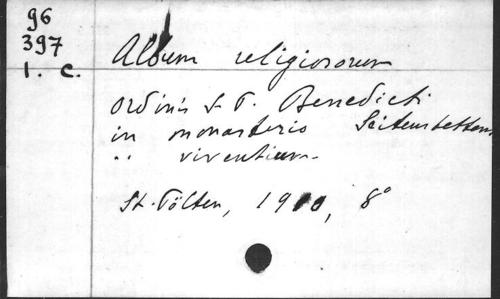 96
397
1. C.
Album religiosorum
Ordinis S. P. Benedicti
in monasterio Seitenstetten
" viventium.
St. Pölten, 1910, 8°